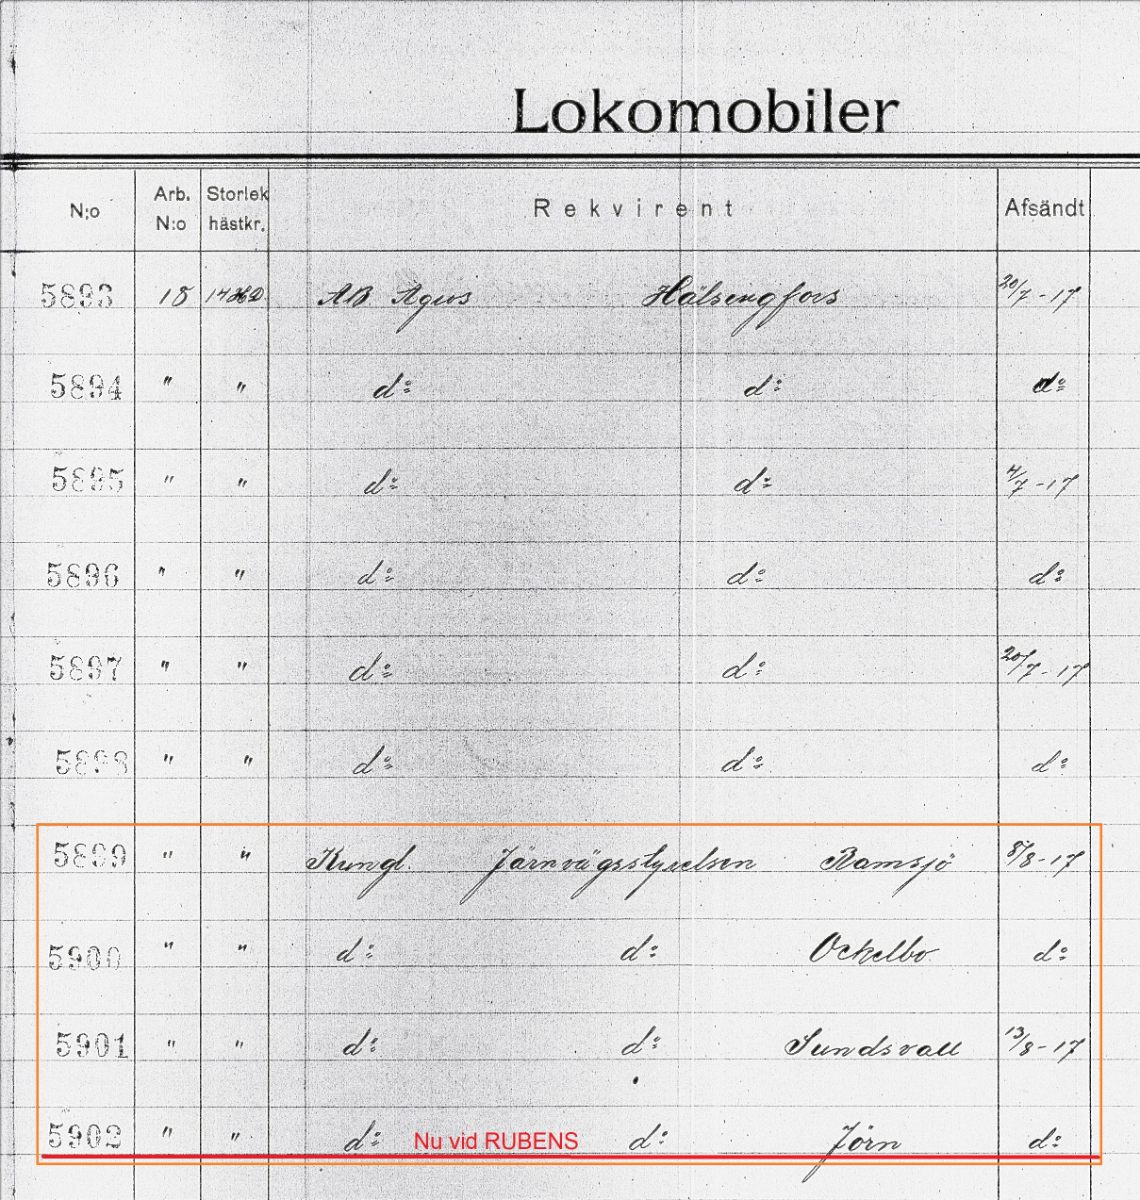 Lokomobiler
N:o Arb. N:o Storlek hästkr. Rekvirent Afsändt
5893 18 14 HD. AB Agros Hälsengfors 20/7-17
5894 " " d:o d:o d:o
5895 " " d:o d:o 4/7-17
5896 " " d:o d:o d:o
5897 " " d:o d:o 20/7-17
5898 " " d:o d:o d:o
5899 " " Kungl. Järnvägsstyrelsen Ramsjö 8/8-17
5900 " " d:o d:o Ockelbo d:o
5901 " " d:o d:o Sundsvall 13/8-17
5902 " " d:o Nu vid RUBENS d:o Jörn d:o